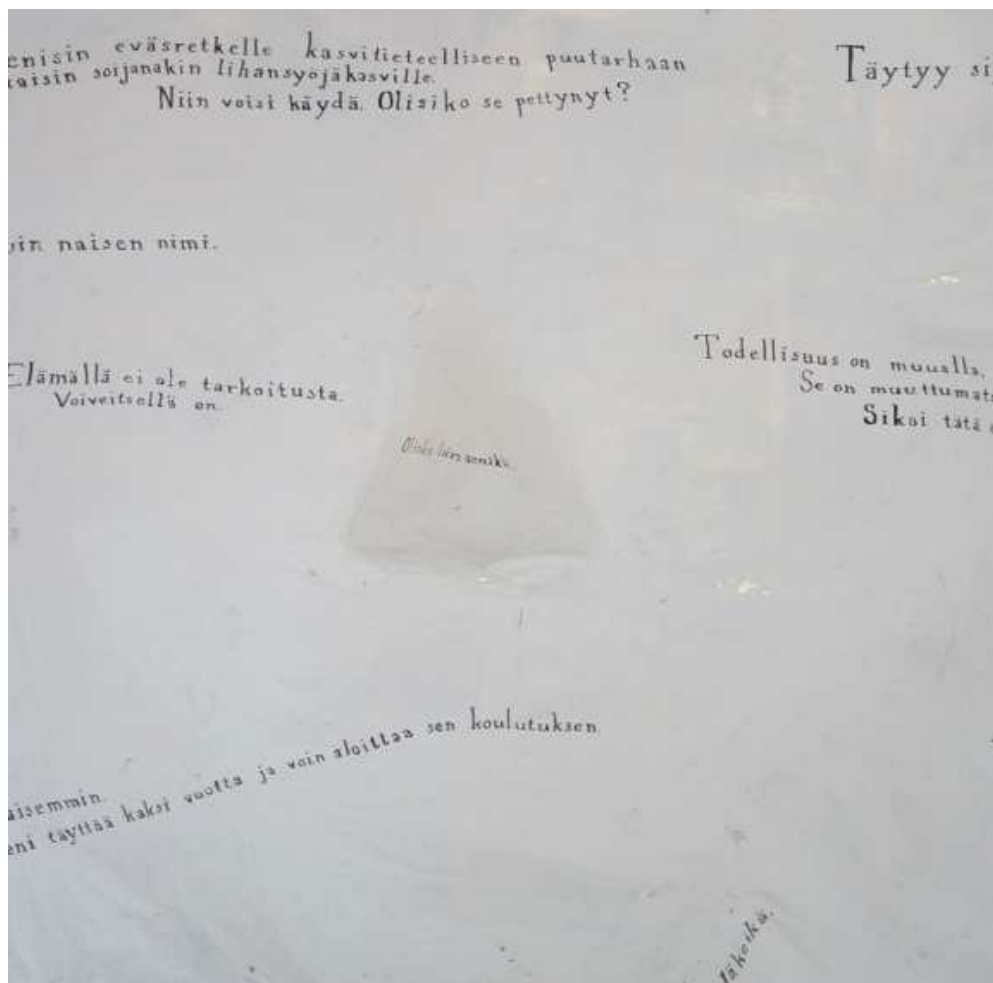 enisin eväsretkelle kasvitieteelliseen puutarhaan
taisin soijanakin lihansyöjäkasville.
Niin voisi käydä. Olisiko se pettynyt?
Täytyy si
oin naisen nimi.
Elämällä ei ole tarkoitusta.
Voiveitsellä on.
Todellisuus on muualla,
Se on muuttumat
Siksi tätä
Olisko
aisemmin.
eni täyttää kaksi vuotta ja voin aloittaa sen koulutuksen